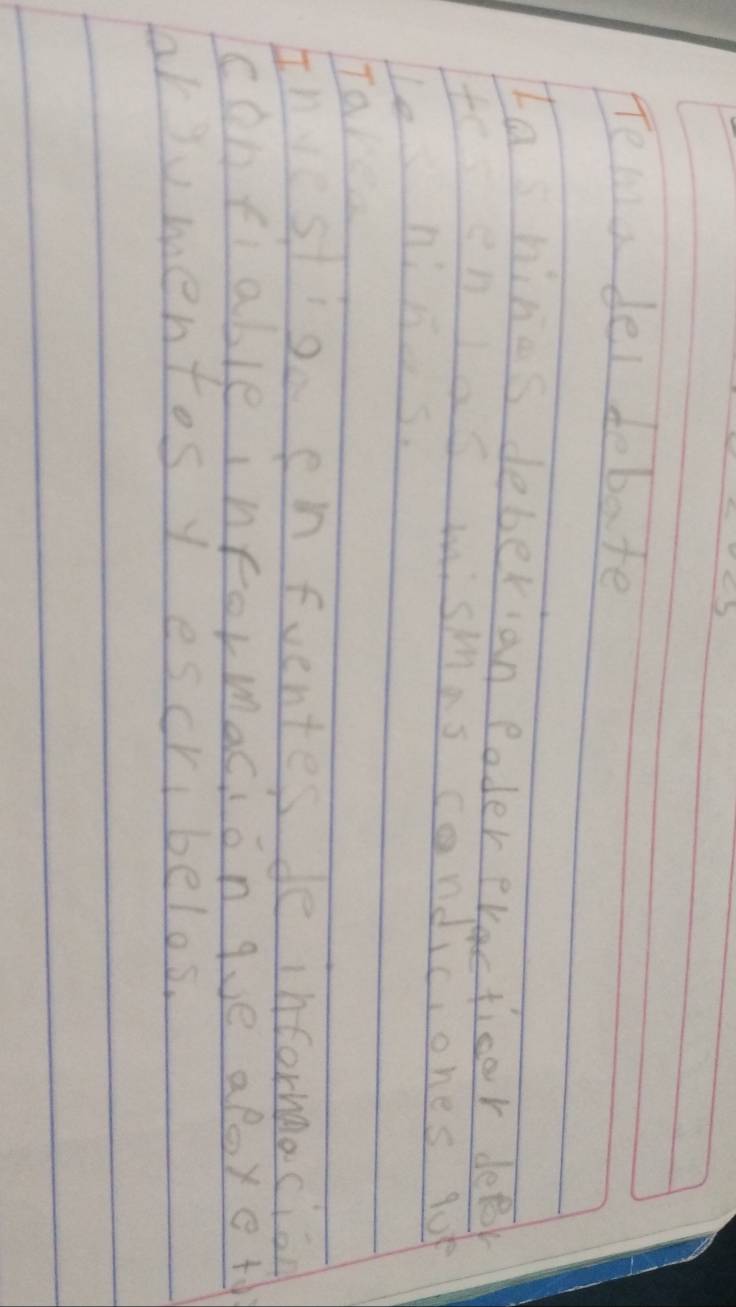 Tema del debate
Las niñas deberian poder practicar depor
tes en las mismas condiciones que
los niños.
Tarea
Investiga en fuentes de información
confiable información que apoye tus
argumentos y escribelos.